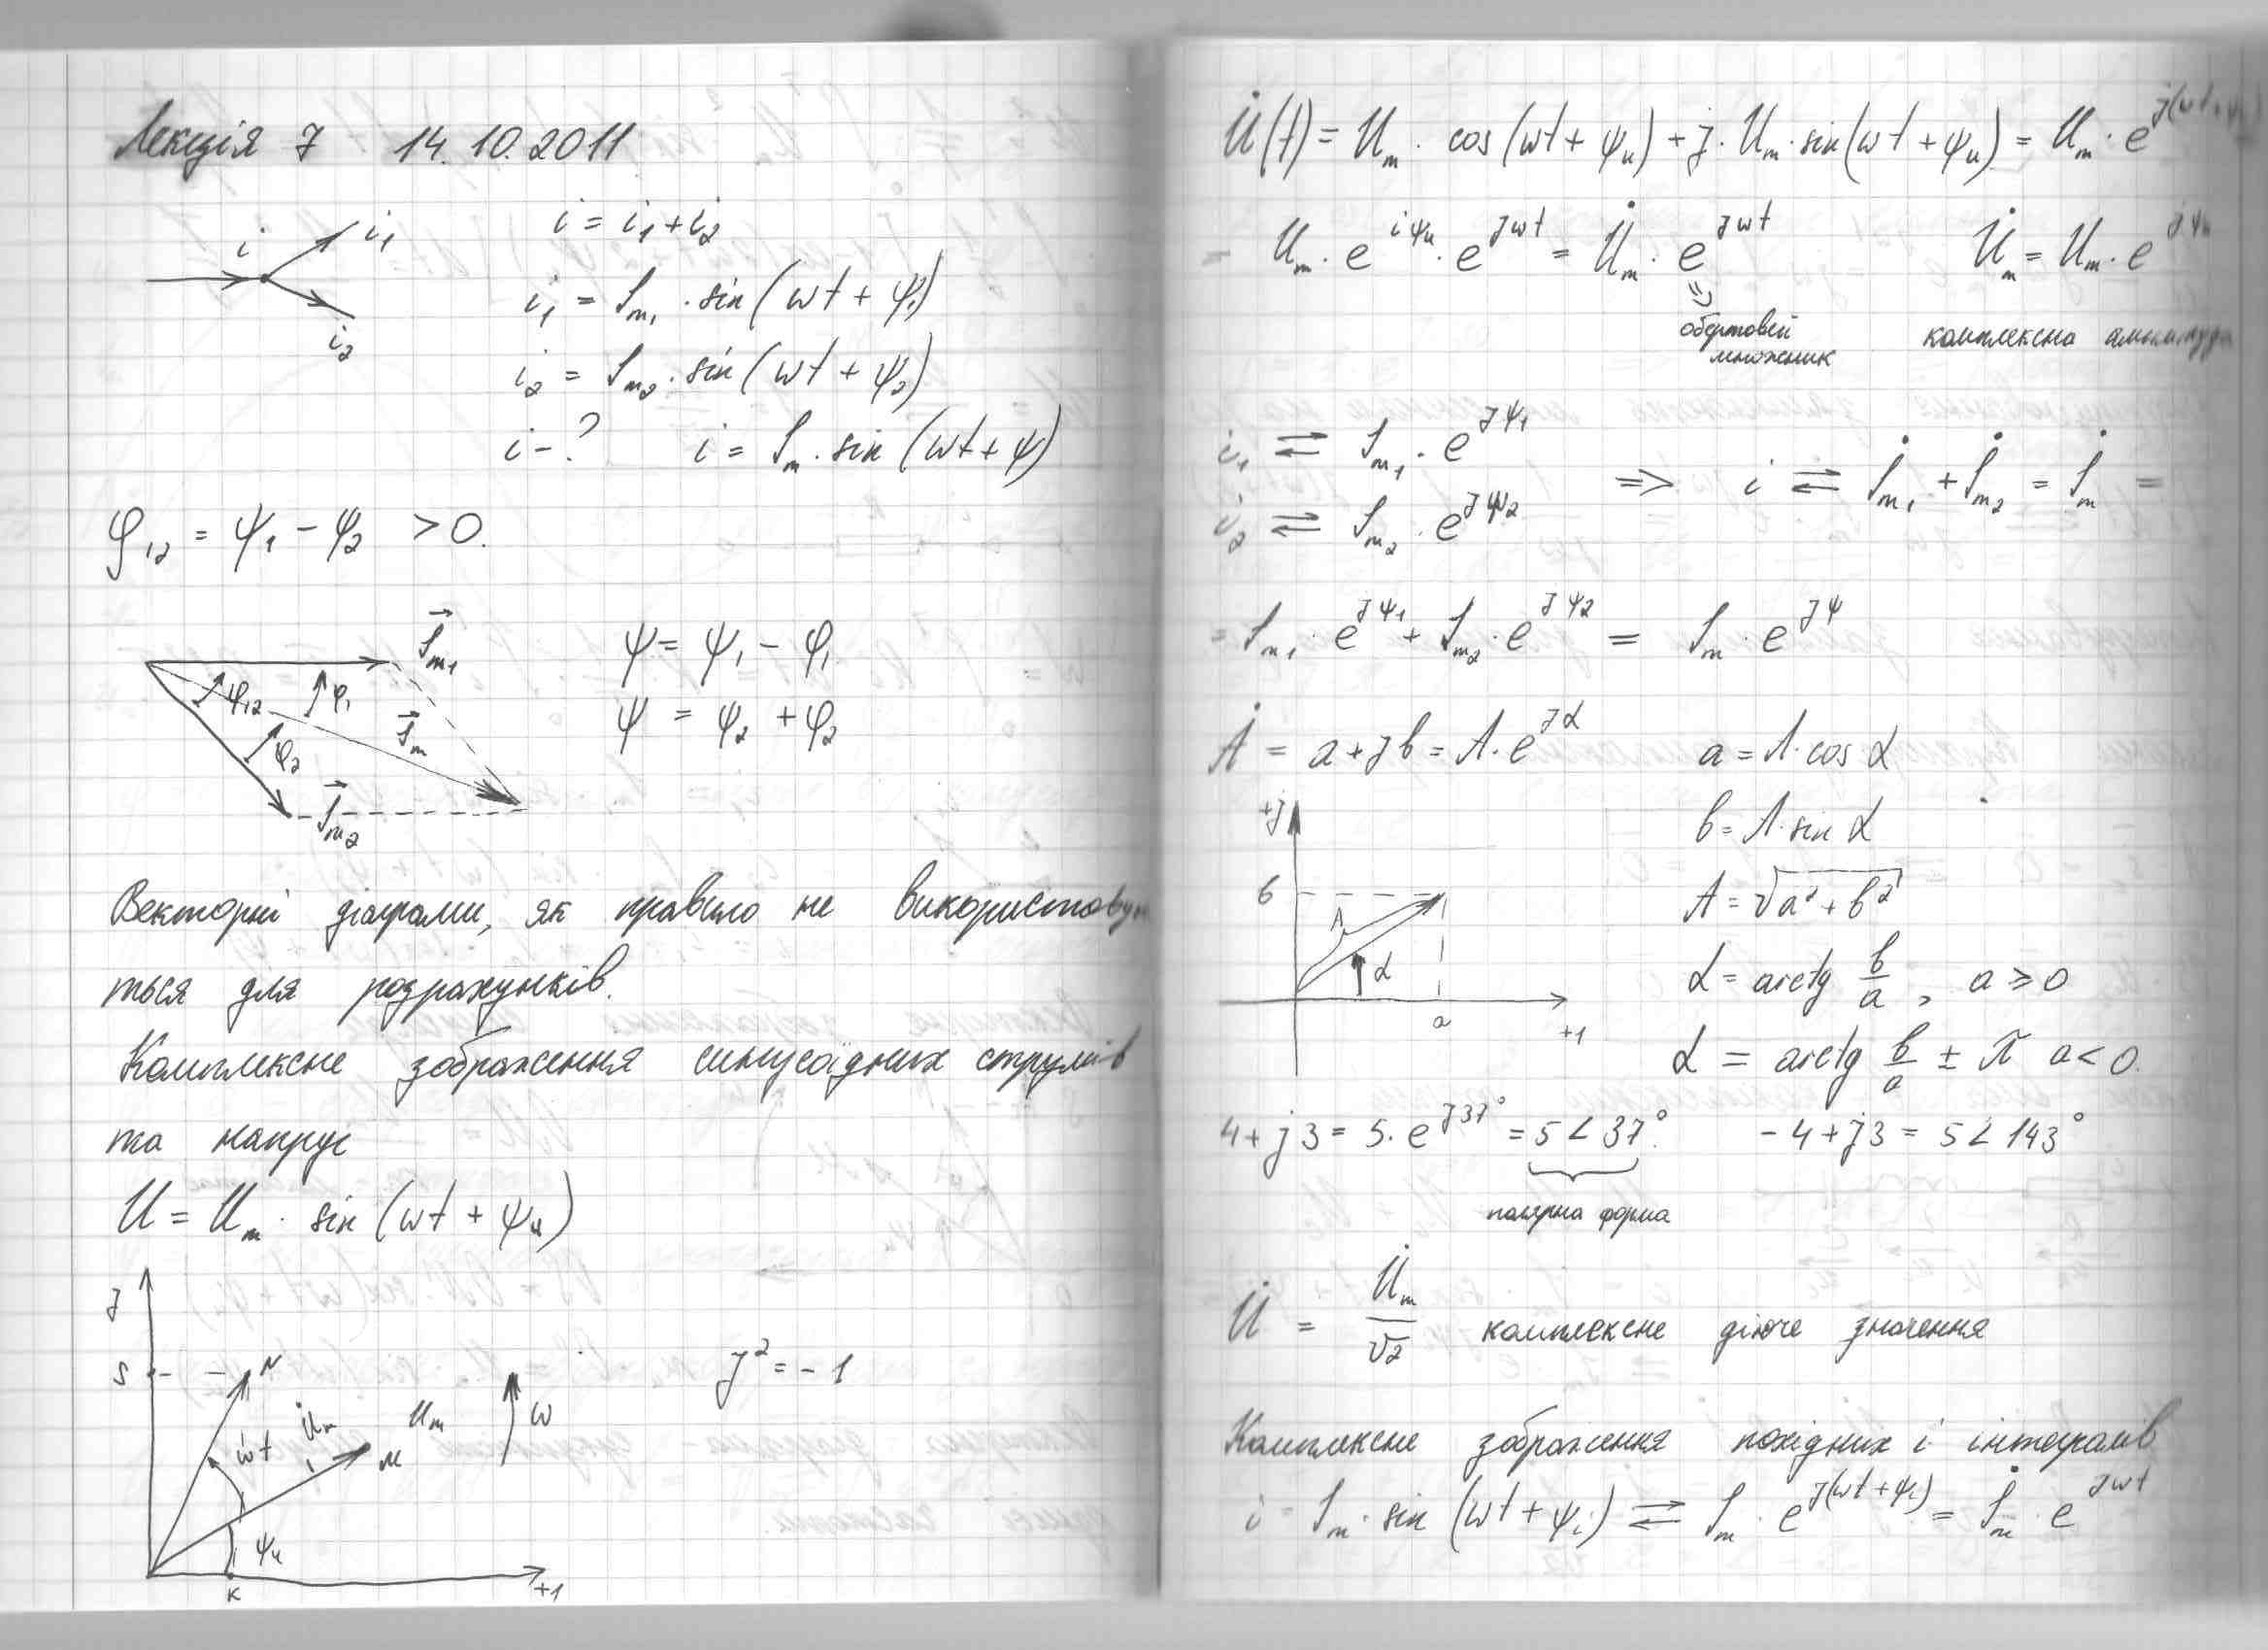 Лекція 7 14.10.2011
i i₁ i = i₁ + i₂
i₁ = Iₘ₁ · sin(ωt + ψ₁)
i₂
i₂ = Iₘ₂ · sin(ωt + ψ₂)
i - ? i = Iₘ · sin(ωt + ψ)
φ₁₂ = ψ₁ - ψ₂ > 0.
I⃗ₘ₁ ψ = ψ₁ - φ₁
φ₁₂ φ₁ I⃗ₘ ψ = ψ₂ + φ₂
φ₂
I⃗ₘ₂
Векторні діаграми, як правило не використову
ться для розрахунків.
Комплексне зображення синусоїдних струмів
та напруг
U = Uₘ · sin(ωt + ψᵤ)
j
S N j² = -1
ωt U̇ₘ Uₘ M ω
ψᵤ
K +1
U̇(t) = Uₘ · cos(ωt + ψᵤ) + j · Uₘ · sin(ωt + ψᵤ) = Uₘ · e^{j(ωt+ψᵤ)}
= Uₘ · e^{iψᵤ} · e^{jωt} = U̇ₘ · e^{jωt} U̇ₘ = Uₘ · e^{jψᵤ}
=>
обертовий
множник комплексна амплітуда
i₁ ⇄ Iₘ₁ · e^{jψ₁}
=> i ⇄ İₘ₁ + İₘ₂ = İₘ =
i₂ ⇄ Iₘ₂ · e^{jψ₂}
= Iₘ₁ · e^{jψ₁} + Iₘ₂ · e^{jψ₂} = Iₘ · e^{jψ}
Ȧ = a + jb = A · e^{jα} a = A · cos α
+j b = A · sin α
b A A = √(a² + b²)
α α = arctg b/a , a ≥ 0
a +1
α = arctg b/a ± π a < 0.
4 + j3 = 5 · e^{j37°} = 5∠37°. -4 + j3 = 5∠143°
полярна форма
U̇ = U̇ₘ/√2 комплексне діюче значення
Комплексне зображення похідних і інтегралів
i = Iₘ · sin(ωt + ψᵢ) ⇄ Iₘ · e^{j(ωt+ψᵢ)} = İₘ · e^{jωt}